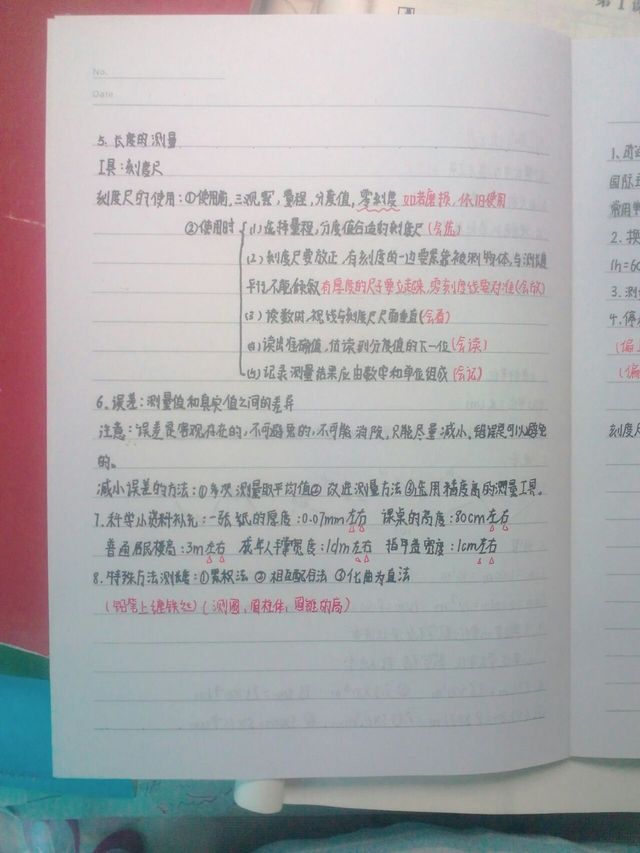 第1课
No.
Date
5. 长度的测量
工具:刻度尺
刻度尺的使用:①使用前,三观察,量程,分度值,零刻度 如若磨损,依旧使用
②使用时 (1)选择量程,分度值合适的刻度尺(会选)
(2)刻度尺要放正,有刻度的一边要紧靠被测物体,与测长度
平行不能倾斜 有厚度的尺子要立起来,零刻度线要对准(会放)
(3)读数时,视线与刻度尺尺面垂直(会看)
(4)读出准确值,估读到分度值的下一位(会读)
(5)记录测量结果应由数字和单位组成(会记)
6. 误差:测量值和真实值之间的差异
注意:误差是客观存在的,不可避免的,不可能消除,只能尽量减小。错误是可以避免
的。
减小误差的方法:①多次测量取平均值②改进测量方法③选用精度高的测量工具。
7. 科学小资料补充:一张纸的厚度:0.07mm左右 课桌的高度:80cm左右
普通居民楼高:3m左右 成年人手掌宽度:1dm左右 指甲盖宽度:1cm左右
8. 特殊方法测量:①累积法 ②相互配合法 ③化曲为直法
(铅笔上缠铁丝)(测圆,圆柱体,圆锥的高)
1.
国际
常用
2. 换
1h=60
3. 测
4. 停
(偏
(偏
刻度